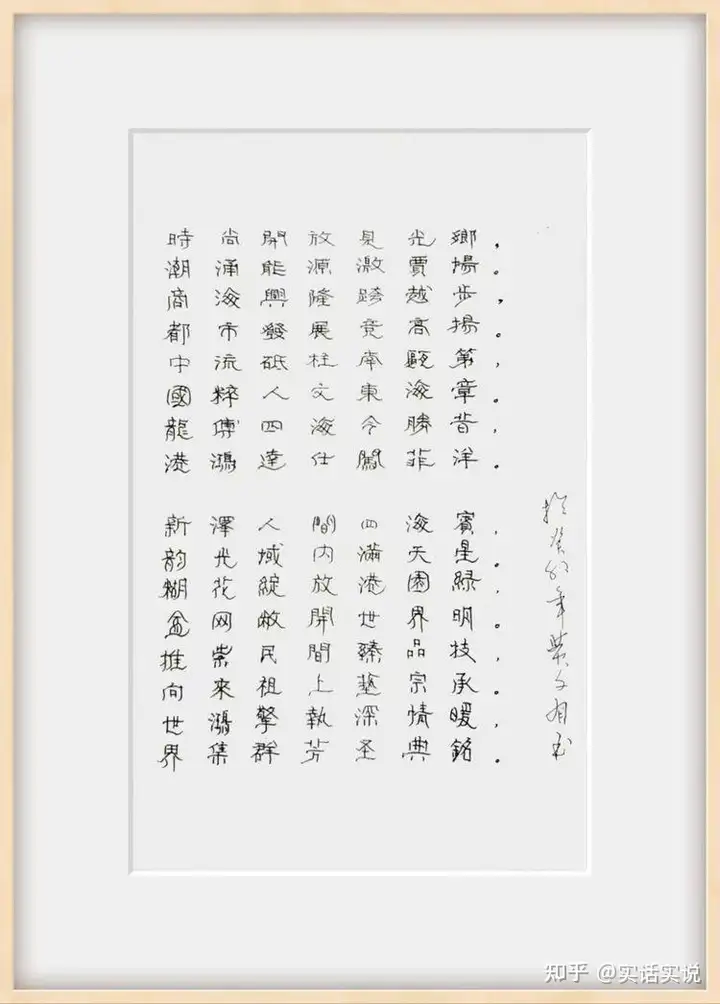 時尚開放見光鄉，
潮涌能源激賈揚。
商海興隆跨越步，
都市發展竞高揚。
中流砥柱南甌第，
國粹人文東海章。
龍傳四海今勝昔，
港鴻達仕闖菲洋。
新澤人間四海賓，
韵光域内滿天星。
糊花綻放港園緑，
盆网敞開世界明。
推崇民間臻品技，
向來祖上藝宗承。
世鴻擎執深情暖，
界集群芳圣典銘。
癸卯年
知乎 @实话实说